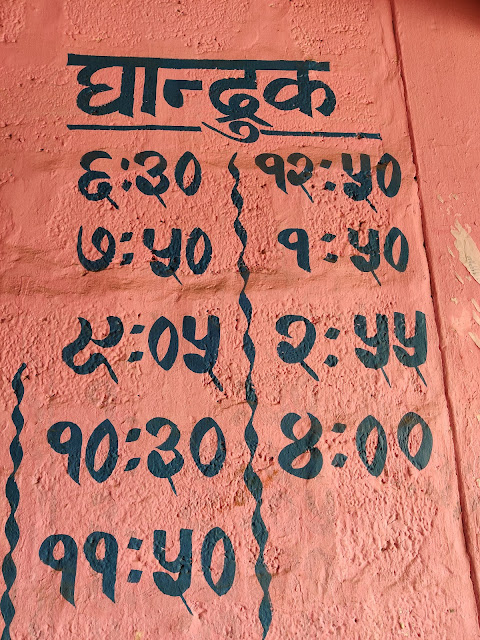 घान्द्रुक
६:३० १२:५०
७:५० १:५०
९:०५ २:५५
१०:३० ४:००
११:५०